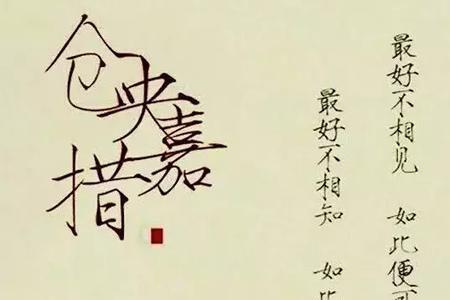 最好不相见 如此便可
最好不相知 如此
仓央嘉措